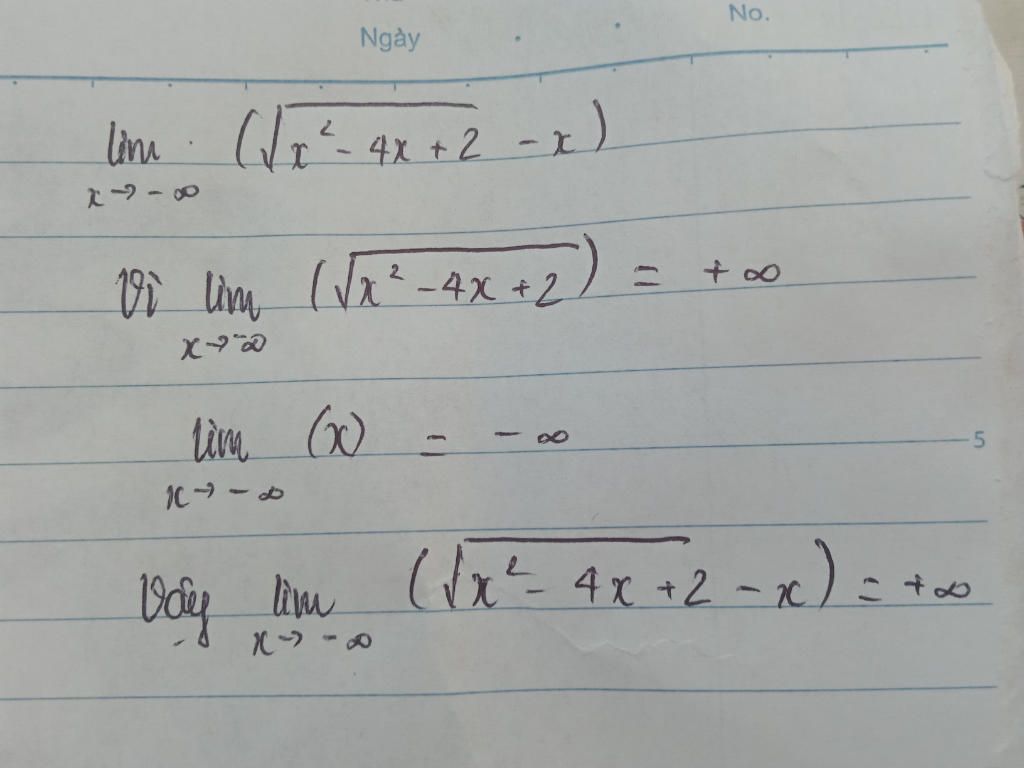 Ngày
No.
lim (√(x² - 4x + 2) - x)
x → -∞
Vì lim (√(x² - 4x + 2)) = +∞
x → -∞
lim (x) = -∞
5
x → -∞
Vậy lim (√(x² - 4x + 2) - x) = +∞
x → -∞